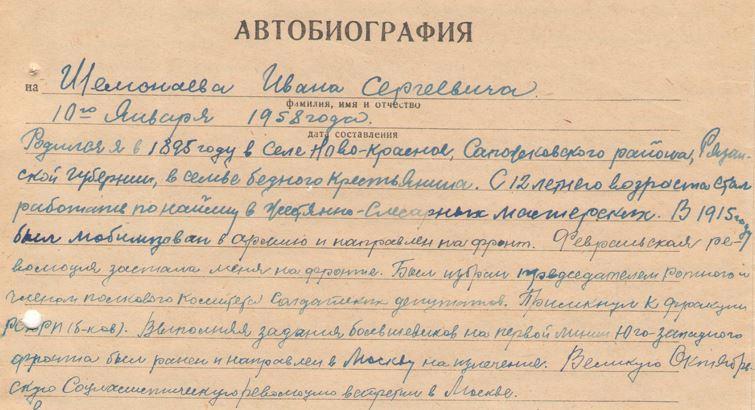 АВТОБИОГРАФИЯ
на Шемонаева Ивана Сергеевича
фамилия, имя и отчество
10го Января 1958 года.
дата составления
Родился я в 1895 году в селе Ново-Красное, Сапожковского района, Рязан-
ской губернии, в семье бедного крестьянина. С 12 летнего возраста стал
работать по найму в жестянно-слесарных мастерских. В 1915 году
был мобилизован в армию и направлен на фронт. Февральская ре-
волюция застала меня на фронте. Был избран председателем ротного и
членом полкового комитета солдатских депутатов. Примкнул к фракции
РСДРП (б-ков). Выполняя задания большевиков на первой линии Юго-западного
фронта был ранен и направлен в Москву на излечение. Великую Октябрь-
скую Социалистическую революцию встретил в Москве.